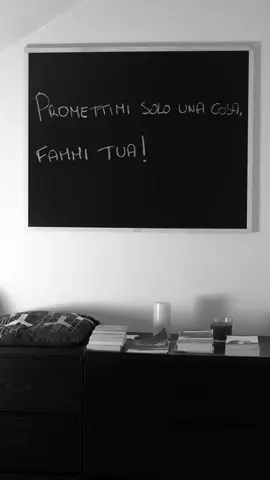 PROMETTIMI SOLO UNA COSA,
FAMMI TUA!